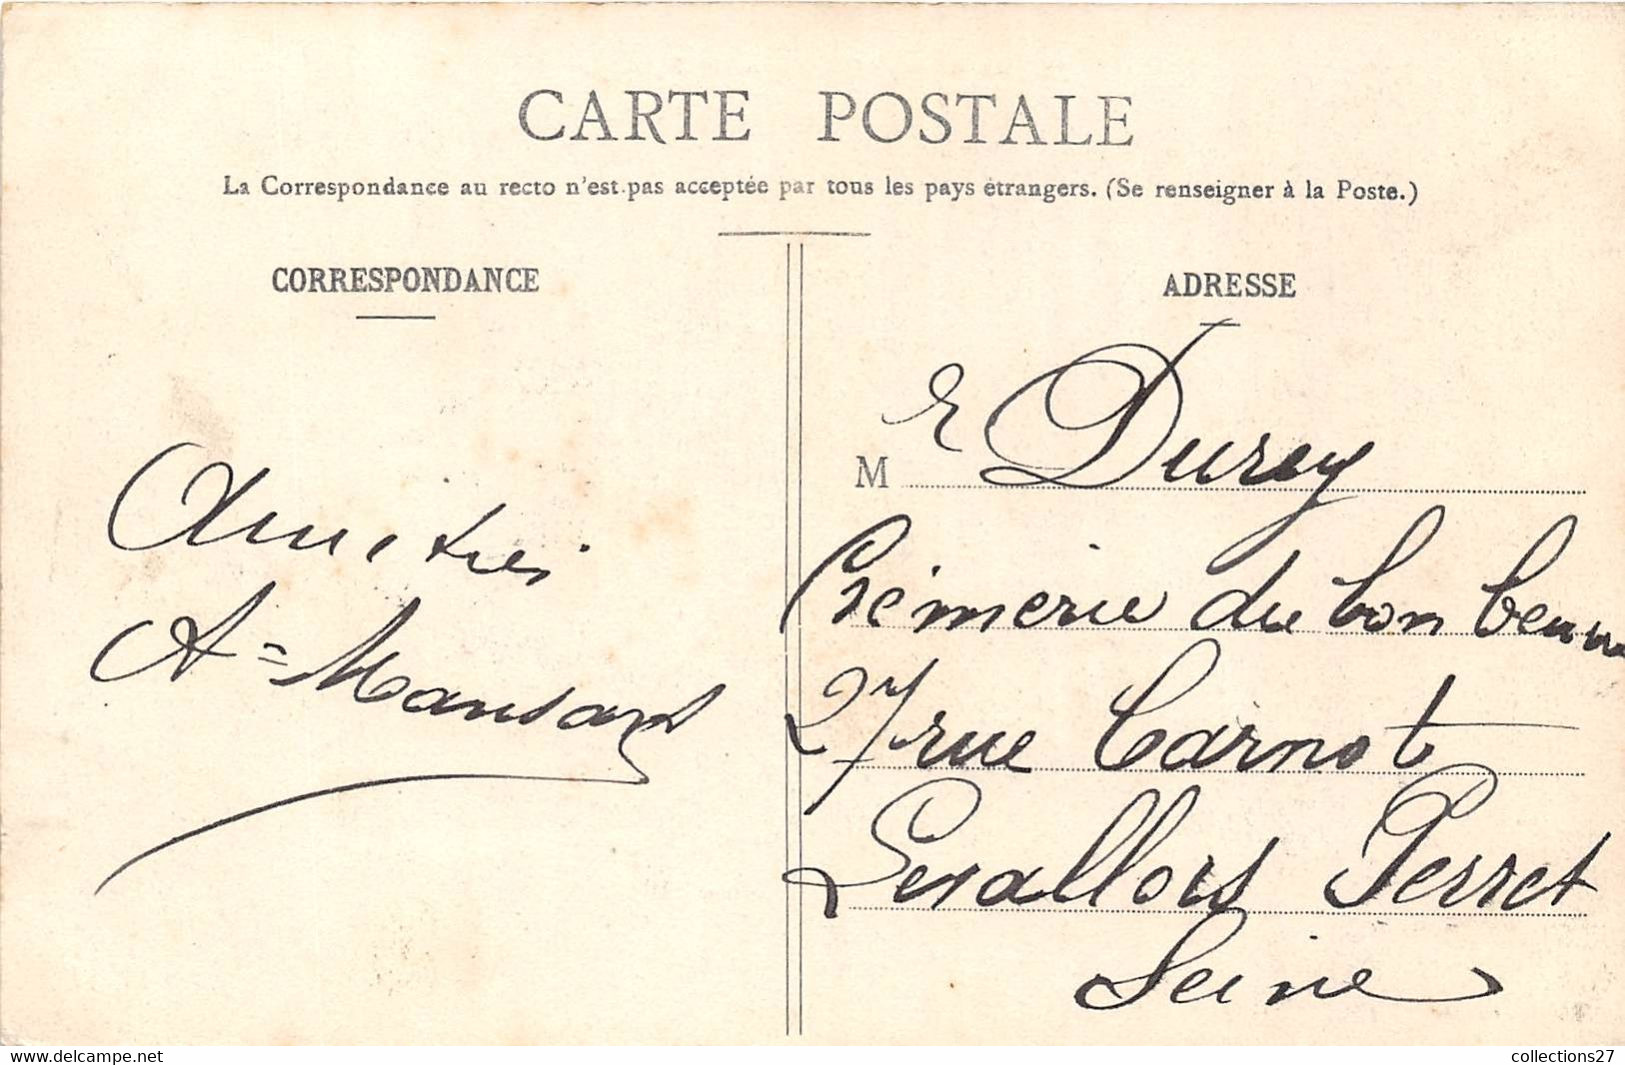 CARTE POSTALE
La Correspondance au recto n'est pas acceptée par tous les pays étrangers. (Se renseigner à la Poste.)
CORRESPONDANCE
Amitiés
A= Mansart
ADRESSE
M E Durey
Crémerie du bon beurre
27 rue Carnot
Levallois Perret
Seine
www.delcampe.net
collections27